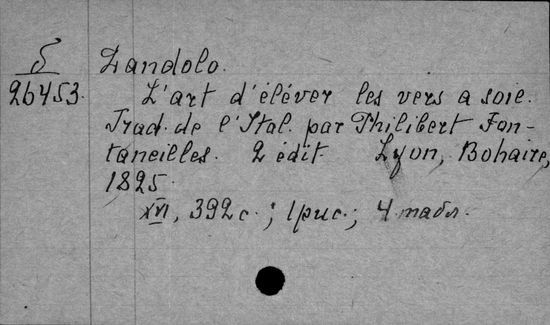 Б
26453.
Dandolo.
L'art d'éléver les vers a soie.
Trad. de l'Ital. par Philibert Fon-
taneilles. 2 édit Lyon, Bohaire,
1825.
XVI, 392 с.; 1 рис.; 4 табл.